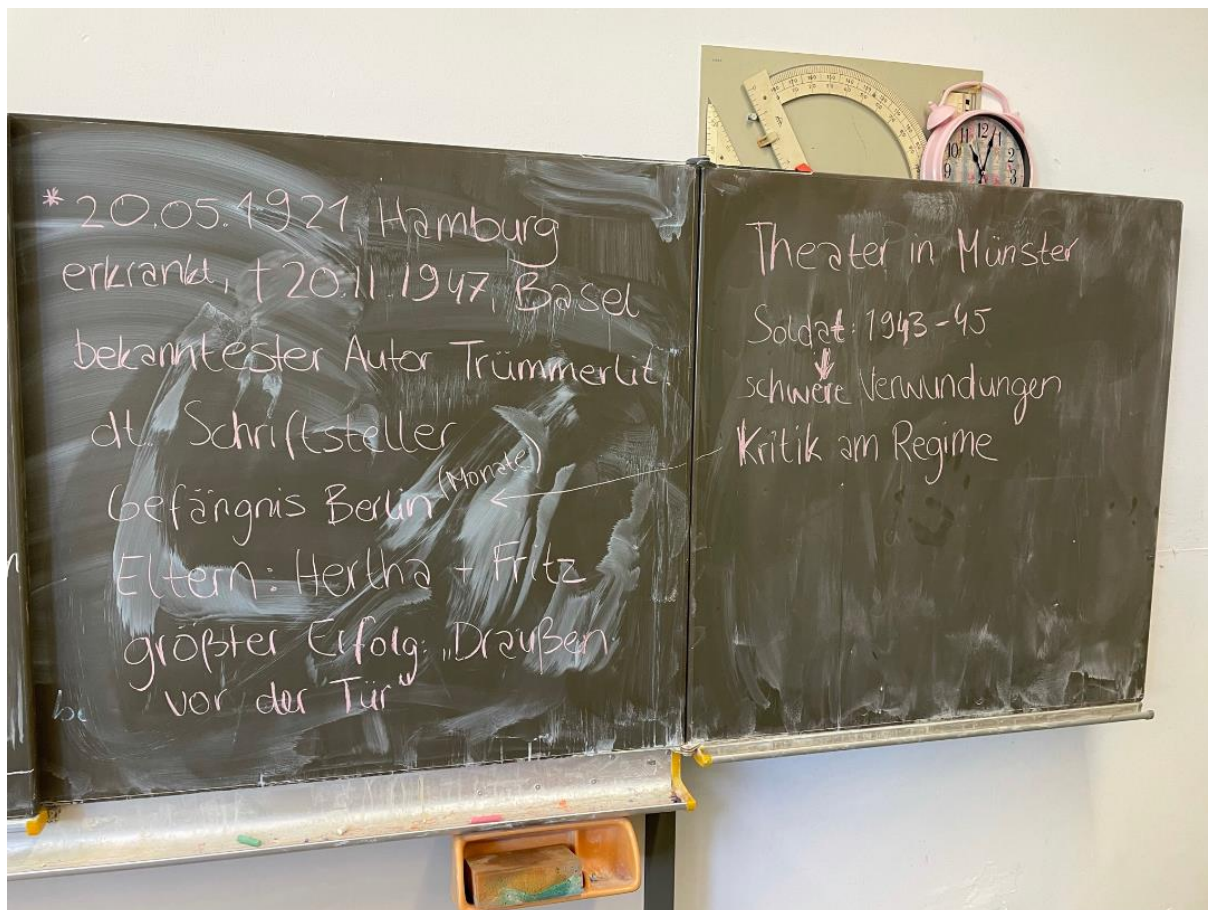 * 20.05.1921, Hamburg
erkrankt, † 20.11.1947, Basel
bekanntester Autor Trümmerlit.
dt. Schriftsteller
Gefängnis Berlin (Monate)
Eltern: Hertha + Fritz
größter Erfolg: „Draußen
vor der Tür"
Theater in Münster
Soldat: 1943-45
schwere Verwundungen
Kritik am Regime